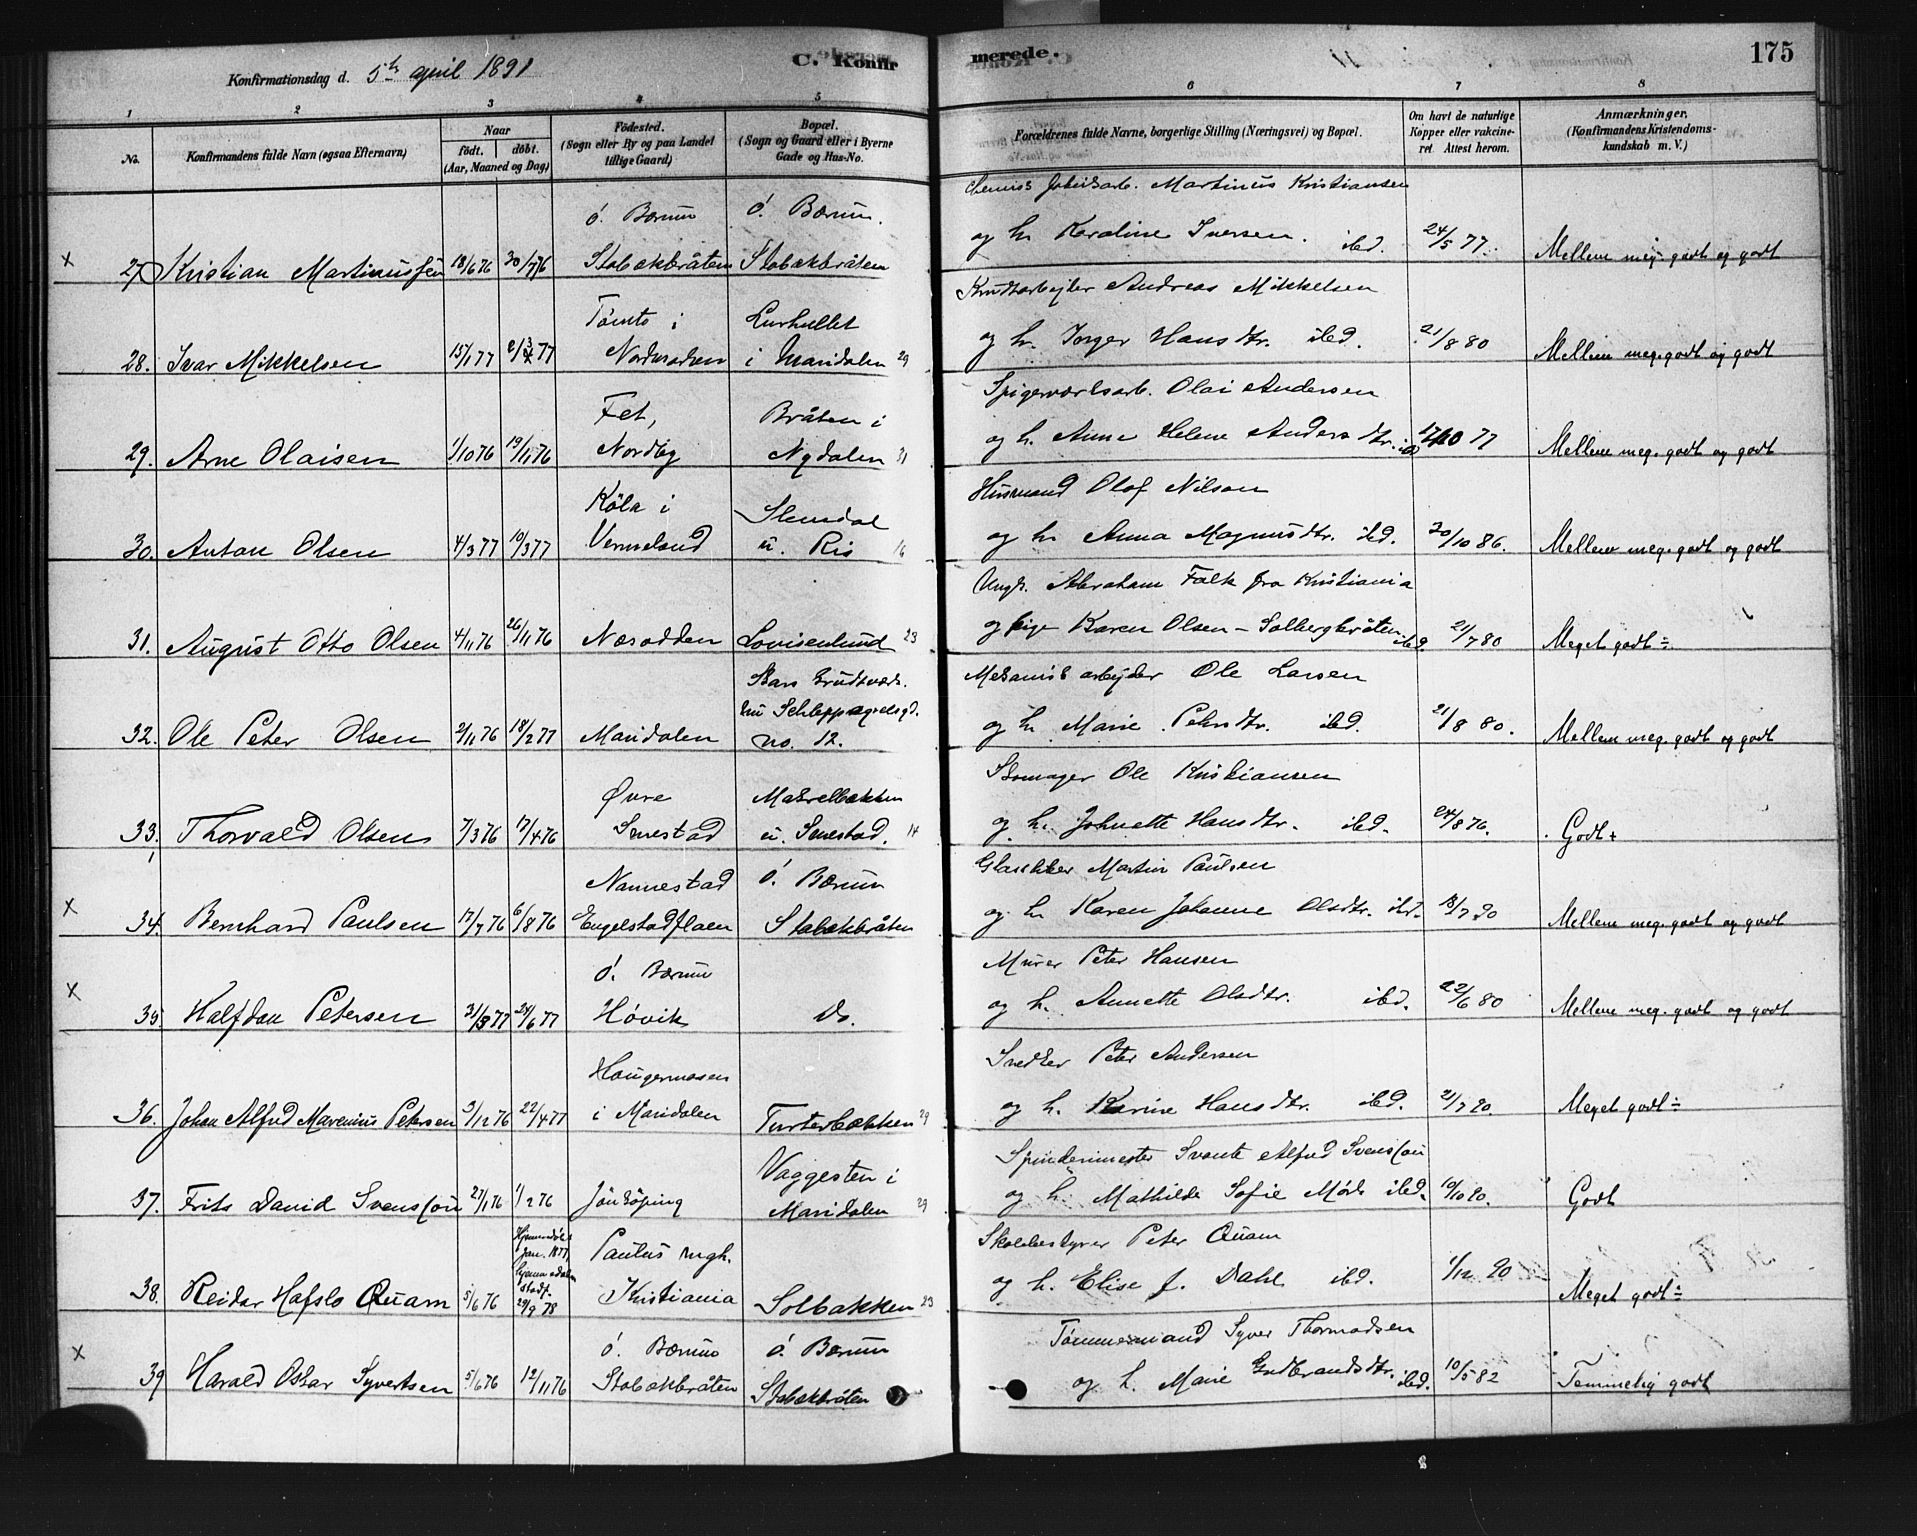 Konfirmationsdag d. 5te april 1891
C. Konfirmerede.
175
1 2 3 4 5 6 7 8
No.
Konfirmandens fulde Navn (ogsaa Efternavn)
Naar
födt. döbt.
(Aar, Maaned og Dag)
Födested.
(Sogn eller By og paa Landet
tillige Gaard)
Bopæl.
(Sogn og Gaard eller i Byerne
Gade og Hus-No.
Forældrenes fulde Navne, borgerlige Stilling (Næringsvei) og Bopæl.
Om havt de naturlige
Kopper eller vakcine-
ret Attest herom.
Anmærkninger.
(Konfirmandens Kristendoms-
kundskab m. V.)
Martinus Kristiansen
ö. Bærum ö. Bærum.
x 27 Kristian Martinussen 18/6 76 30/7 76 Stabækbråten Stabækbråten og h. Karoline Iversen. ibd. 24/5 77. Mellem meg. godt og godt
Krudtarbejder Andreas Mikkelsen
Tömte i
28. Ivar Mikkelsen 15/1 77 77 Nordmarken i Maridalen 29 og h. Inger Hansdtr. ibd. 21/8 80 Mellem meg. godt og godt
Spigerverksarb. Olai Andersen
Fet, Bråten i
29. Arne Olaisen 1/10 76 19/11 76 Nordby Nydalen 31 og h. Anne Helene Andersdtr. ibd 77 Mellem meg. godt og godt
Husmand Olof Nilson
Köla i
30. Anton Olsen 4/3 77 10/3 77 Vermeland u. Ris 16 og h. Anna Magnusdtr. ibd. 20/10 86. Mellem meg. godt og godt
Ungk. Abraham Falk fra Kristiania
31. August Otto Olsen 4/11 76 26/11 76 Næsodden Lovisenlund 23 og pige Karen Olsen – Solbergbråten ibd. 21/7 80 Meget godt ÷
Mekanisk arbejder Ole Larsen
nu Schleppegrelsgd.
32. Ole Peter Olsen 2/11 76 18/2 77 Maridalen no. 12. og h. Marie Pehrsdtr. ibd. 21/8 80. Mellem meg. godt og godt
Skomager Ole Kristiansen
Øvre Makrelbækken
33. Thorvald Olsen 7/3 76 17/4 76 Smestad u. Smestad. 14 og h. Johnette Hansdtr. ibd. 24/8 76. Godt +
Martin Paulsen
Nannestad ö. Bærum
x 34. Bernhard Paulsen 17/7 76 6/8 76 Engelstadflaen Stabækbråten og h. Karen Johanne Olsdtr. ibd. 18/7 90 Mellem meg. godt og godt
Murer Peter Hansen
ö. Bærum
x 35. Halfdan Petersen 31/3 77 24/6 77 Hövik do. og h. Annette Olsdtr. ibd. 22/6 80 Mellem meg. godt og godt
Snedker Peter Andersen
Haugermosen
36. Johan Alfred Marenius Petersen 3/12 76 22/4 77 i Maridalen Turterbækken 29 og h. Karine Hansdtr. ibd. 21/7 90 Meget godt ÷
Spinderimester Svante Alfred Svensson
Vaggesten i
37. Frits David Svensson 27/1 76 1/2 76 Jönköping Maridalen 29 og h. Mathilde Sofie Mörk ibd. 10/10 90. Godt
Skolebestyrer Peter Quam
Hjemmedöbt
Jan. 1877,
stadf.
29/9 78
Paulus mgh.
38. Reidar Hafslo Quam 5/6 76 Kristiania Solbakken 23 og h. Elise f. Dahl ibd. 1/12 90 Meget godt ÷
Tömmermand Syver Thormodsen
ö. Bærum ö. Bærum
x 39 Harald Oskar Syvertsen 5/6 76 12/11 76 Stabækbråten Stabækbråten og h. Marie Gudbrandsdtr. ibd. 10/5 82 Temmelig godt